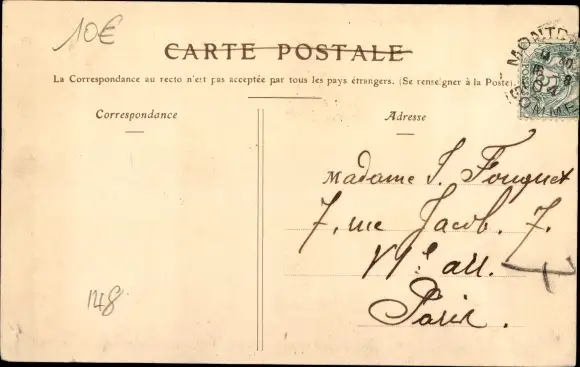 10€
CARTE POSTALE
La Correspondance au recto n'est pas acceptée par tous les pays étrangers. (Se renseigner à la Poste).
Correspondance
Adresse
Madame J. Fouquet
7, rue Jacob. 7.
VIe arr.
Paris.
148